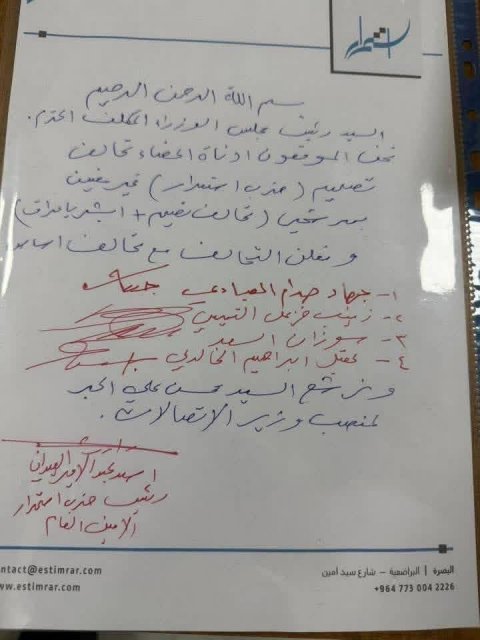 استمرار
بسم الله الرحمن الرحيم
السيد رئيس مجلس الوزراء المكلف المحترم.
نحن الموقعون ادناه اعضاء تحالف
تصميم (حزب استمرار) غير مقيدين
بمرشحي (تحالف تصميم + ابشر يا عراق)
ونعلن التحالف مع تحالف اساس
١- جهاد صدام العبادي
٢- زينب خزعل التميمي
٣- سوزان السعد
٤- عقيل ابراهيم الخالدي
ونرشح السيد محسن علي
لمنصب وزير الاتصالات.
اسعد عبد الامير العيداني
رئيس حزب استمرار
الامين العام
البصرة | البراضعية – شارع سيد امين
+964 773 004 2226
ntact@estimrar.com
ww.estimrar.com